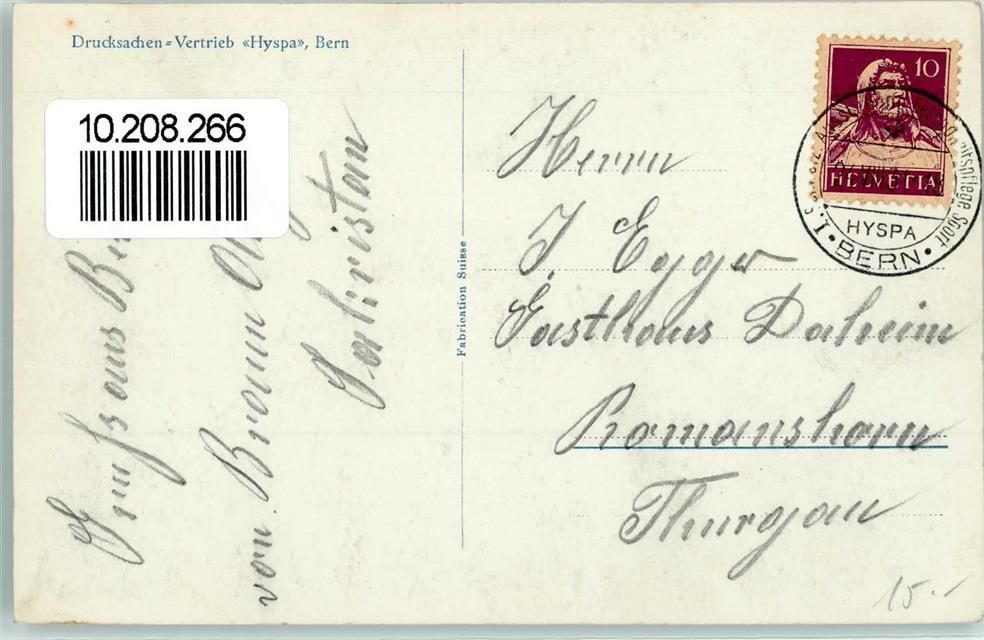 Drucksachen=Vertrieb «Hyspa», Bern
10.208.266
Gruss aus Be
von Braun
Fabrication Suisse
Herrn
J. Egger
Gasthaus Daheim
Romanshorn
Thurgau
10
HELVETIA
HYSPA
I. BERN
15.-